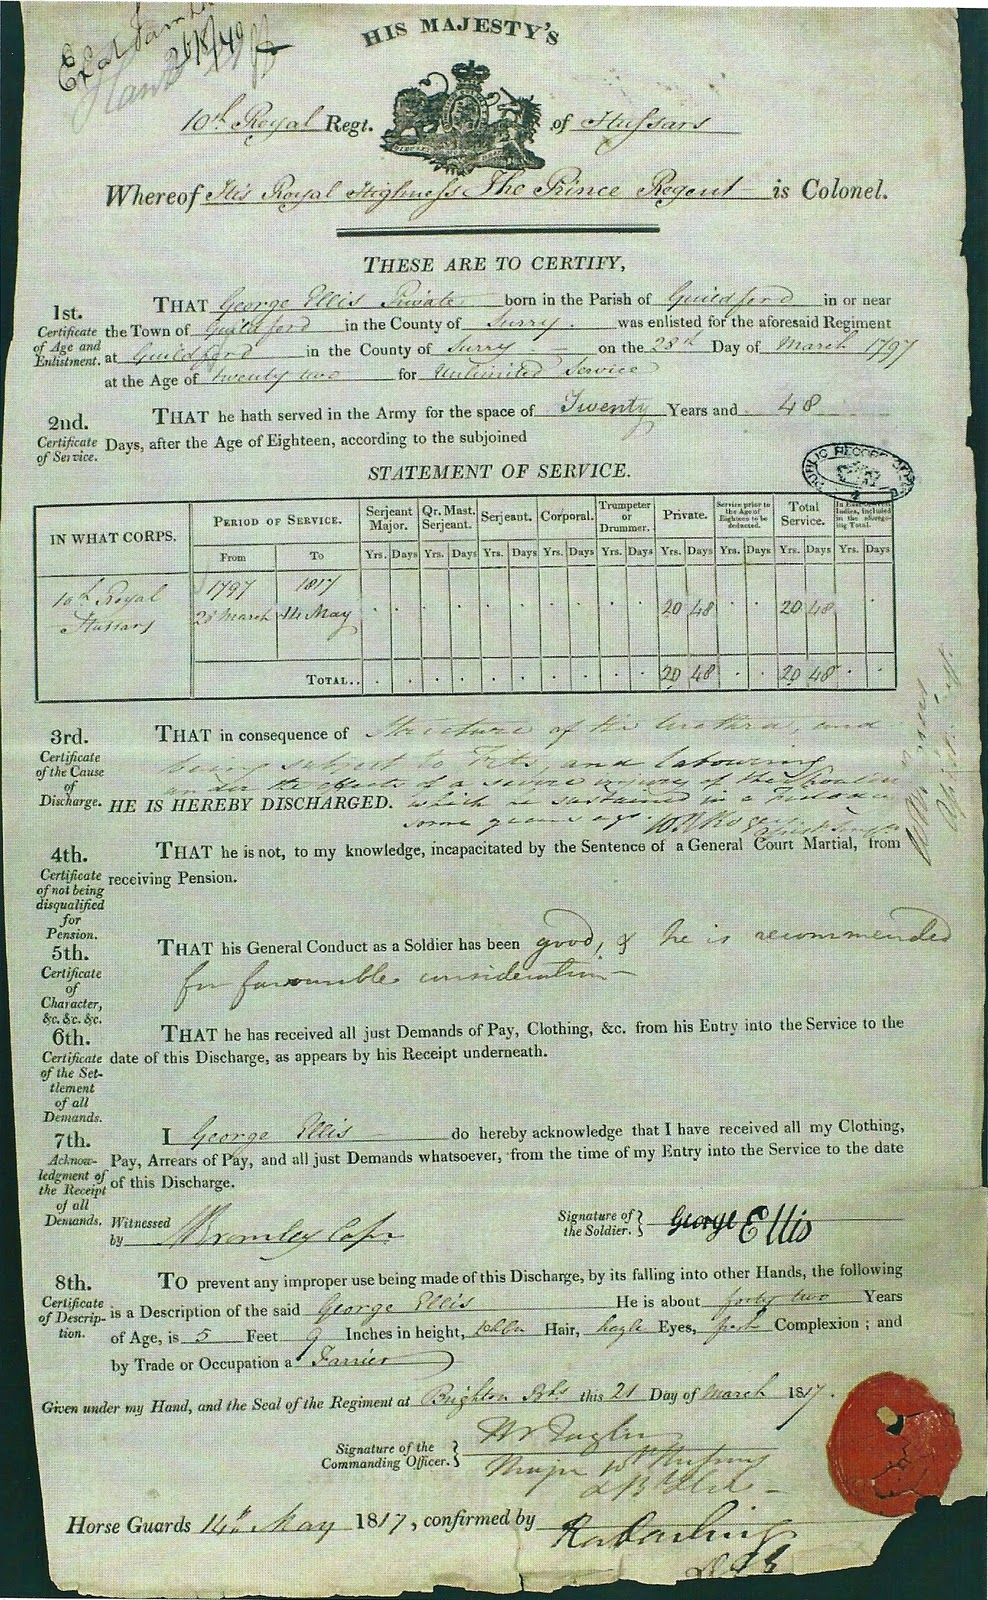 26/8/40
HIS MAJESTY'S
10th Royal Regt. of Hussars
Whereof His Royal Highness The Prince Regent is Colonel.
THESE ARE TO CERTIFY,
1st.
Certificate of Age and Enlistment.
THAT George Ellis Private born in the Parish of Guildford in or near
the Town of Guildford in the County of Surry was enlisted for the aforesaid Regiment
at Guildford in the County of Surry on the 28th Day of March 1797
at the Age of twenty two for Unlimited Service
2nd.
Certificate of Service.
THAT he hath served in the Army for the space of Twenty Years and 48
Days, after the Age of Eighteen, according to the subjoined
STATEMENT OF SERVICE.
PUBLIC RECORD OFFICE
IN WHAT CORPS. PERIOD OF SERVICE. Serjeant Major. Qr. Mast. Serjeant. Serjeant. Corporal. Trumpeter or Drummer. Private. Service prior to the Age of Eighteen to be deducted. Total Service. Indies, included in the aforegoing Total.
From To Yrs. Days Yrs. Days Yrs. Days Yrs. Days Yrs. Days Yrs. Days Yrs. Days Yrs. Days Yrs. Days
10th Royal 1797 1817
Hussars 28 March 14 May 20 48 20 48
TOTAL.. 20 48 20 48
3rd.
Certificate of the Cause of Discharge.
THAT in consequence of Stricture of the Urethra, and
being subject to Fits, and labouring
under the effects of a severe injury of the
HE IS HEREBY DISCHARGED. which he sustained in a
some years ago.
4th.
Certificate of not being disqualified for Pension.
THAT he is not, to my knowledge, incapacitated by the Sentence of a General Court Martial, from
receiving Pension.
5th.
Certificate of Character, &c. &c. &c.
THAT his General Conduct as a Soldier has been good, & he is recommended
for favourable consideration
6th.
Certificate of the Settlement of all Demands.
THAT he has received all just Demands of Pay, Clothing, &c. from his Entry into the Service to the
date of this Discharge, as appears by his Receipt underneath.
7th.
Acknowledgment of the Receipt of all Demands.
I George Ellis do hereby acknowledge that I have received all my Clothing,
Pay, Arrears of Pay, and all just Demands whatsoever, from the time of my Entry into the Service to the date
of this Discharge.
Witnessed by Bromley
Signature of the Soldier. George Ellis
8th.
Certificate of Description.
TO prevent any improper use being made of this Discharge, by its falling into other Hands, the following
is a Description of the said George Ellis He is about forty two Years
of Age, is 5 Feet 9 Inches in height, Hair, hazle Eyes, Complexion; and
by Trade or Occupation a Farrier
Given under my Hand, and the Seal of the Regiment at Brighton Bks this 21 Day of March 1817.
Signature of the Commanding Officer.
Major 10th Hussars
Horse Guards 14th May 1817, confirmed by